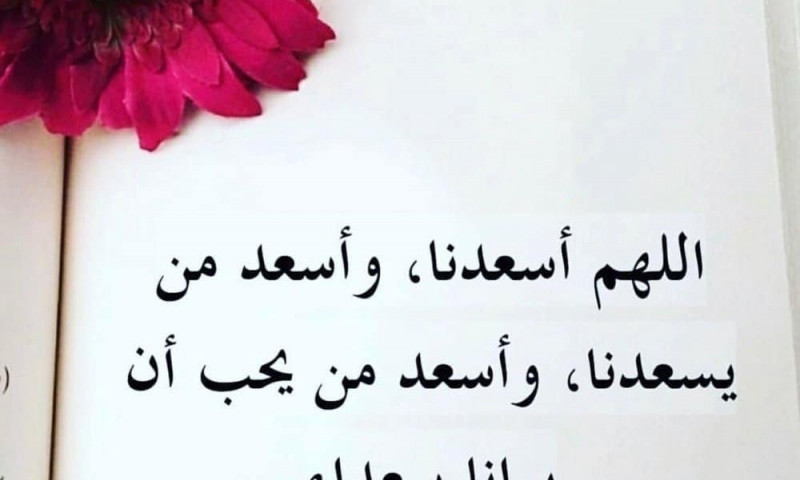 اللهم أسعدنا، وأسعد من
يسعدنا، وأسعد من يحب أن